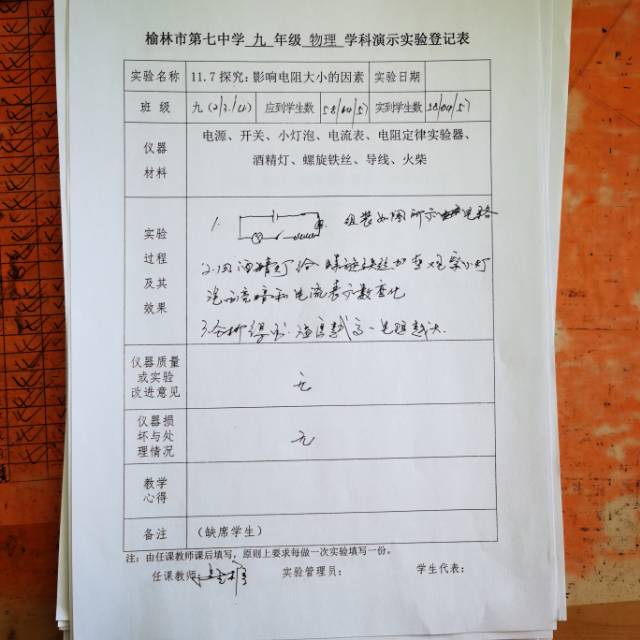 榆林市第七中学 九 年级 物理 学科演示实验登记表
实验名称 11.7 探究：影响电阻大小的因素 实验日期
班 级 九 应到学生数 58/64/57 实到学生数 58/64/57
仪器材料 电源、开关、小灯泡、电流表、电阻定律实验器、
酒精灯、螺旋铁丝、导线、火柴
实验过程及其效果 1. 组装如图所示电路
2.用酒精灯给螺旋铁丝加热观察小灯
泡的亮暗和电流表示数变化
3.分析得出：温度越高，电阻越大.
仪器质量或实验改进意见 无
仪器损坏与处理情况 无
教学心得
备注 （缺席学生）
注：由任课教师课后填写，原则上要求每做一次实验填写一份。
任课教师 实验管理员： 学生代表：